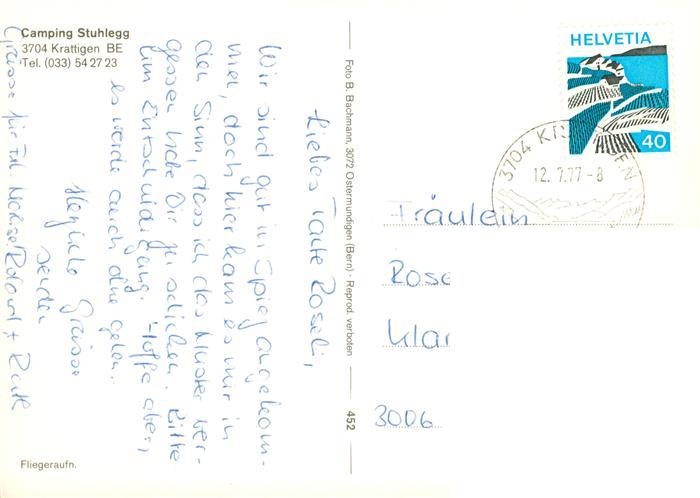 Camping Stuhlegg
3704 Krattigen BE
Tel. (033) 54 27 23
Liebes Tante Roseli,
Wir sind gut in Spiez angekom-
men, doch hier kam es mir in
den Sinn, dass ich das Muster ver-
gessen habe Dir zu schicken. Bitte
um Entschuldigung. Hoffe aber,
es werde auch ohne gehen.
Herzliche Grüsse
senden
Roland + Ruth
Grüsse für Frl.
Fliegeraufn.
Foto B. Bachmann, 3072 Ostermundigen (Bern) · Reprod. verboten
452
HELVETIA
40
3704 KR
12. 7. 77 - 8
Fräulein
Rose
Klar
3006